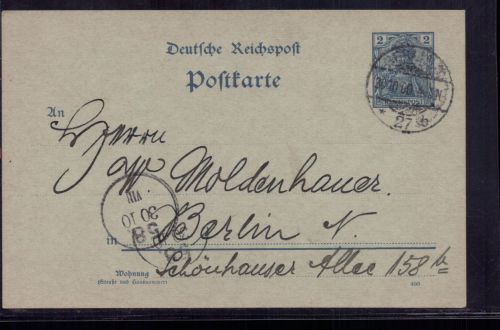 Deutsche Reichspost
Postkarte
2
2
An
Herrn
W Moldenhauer.
30 10
VIII
58
in Berlin N.
Schönhauser Allee 158 b
Wohnung
(Straße und Hausnummer)
27 b